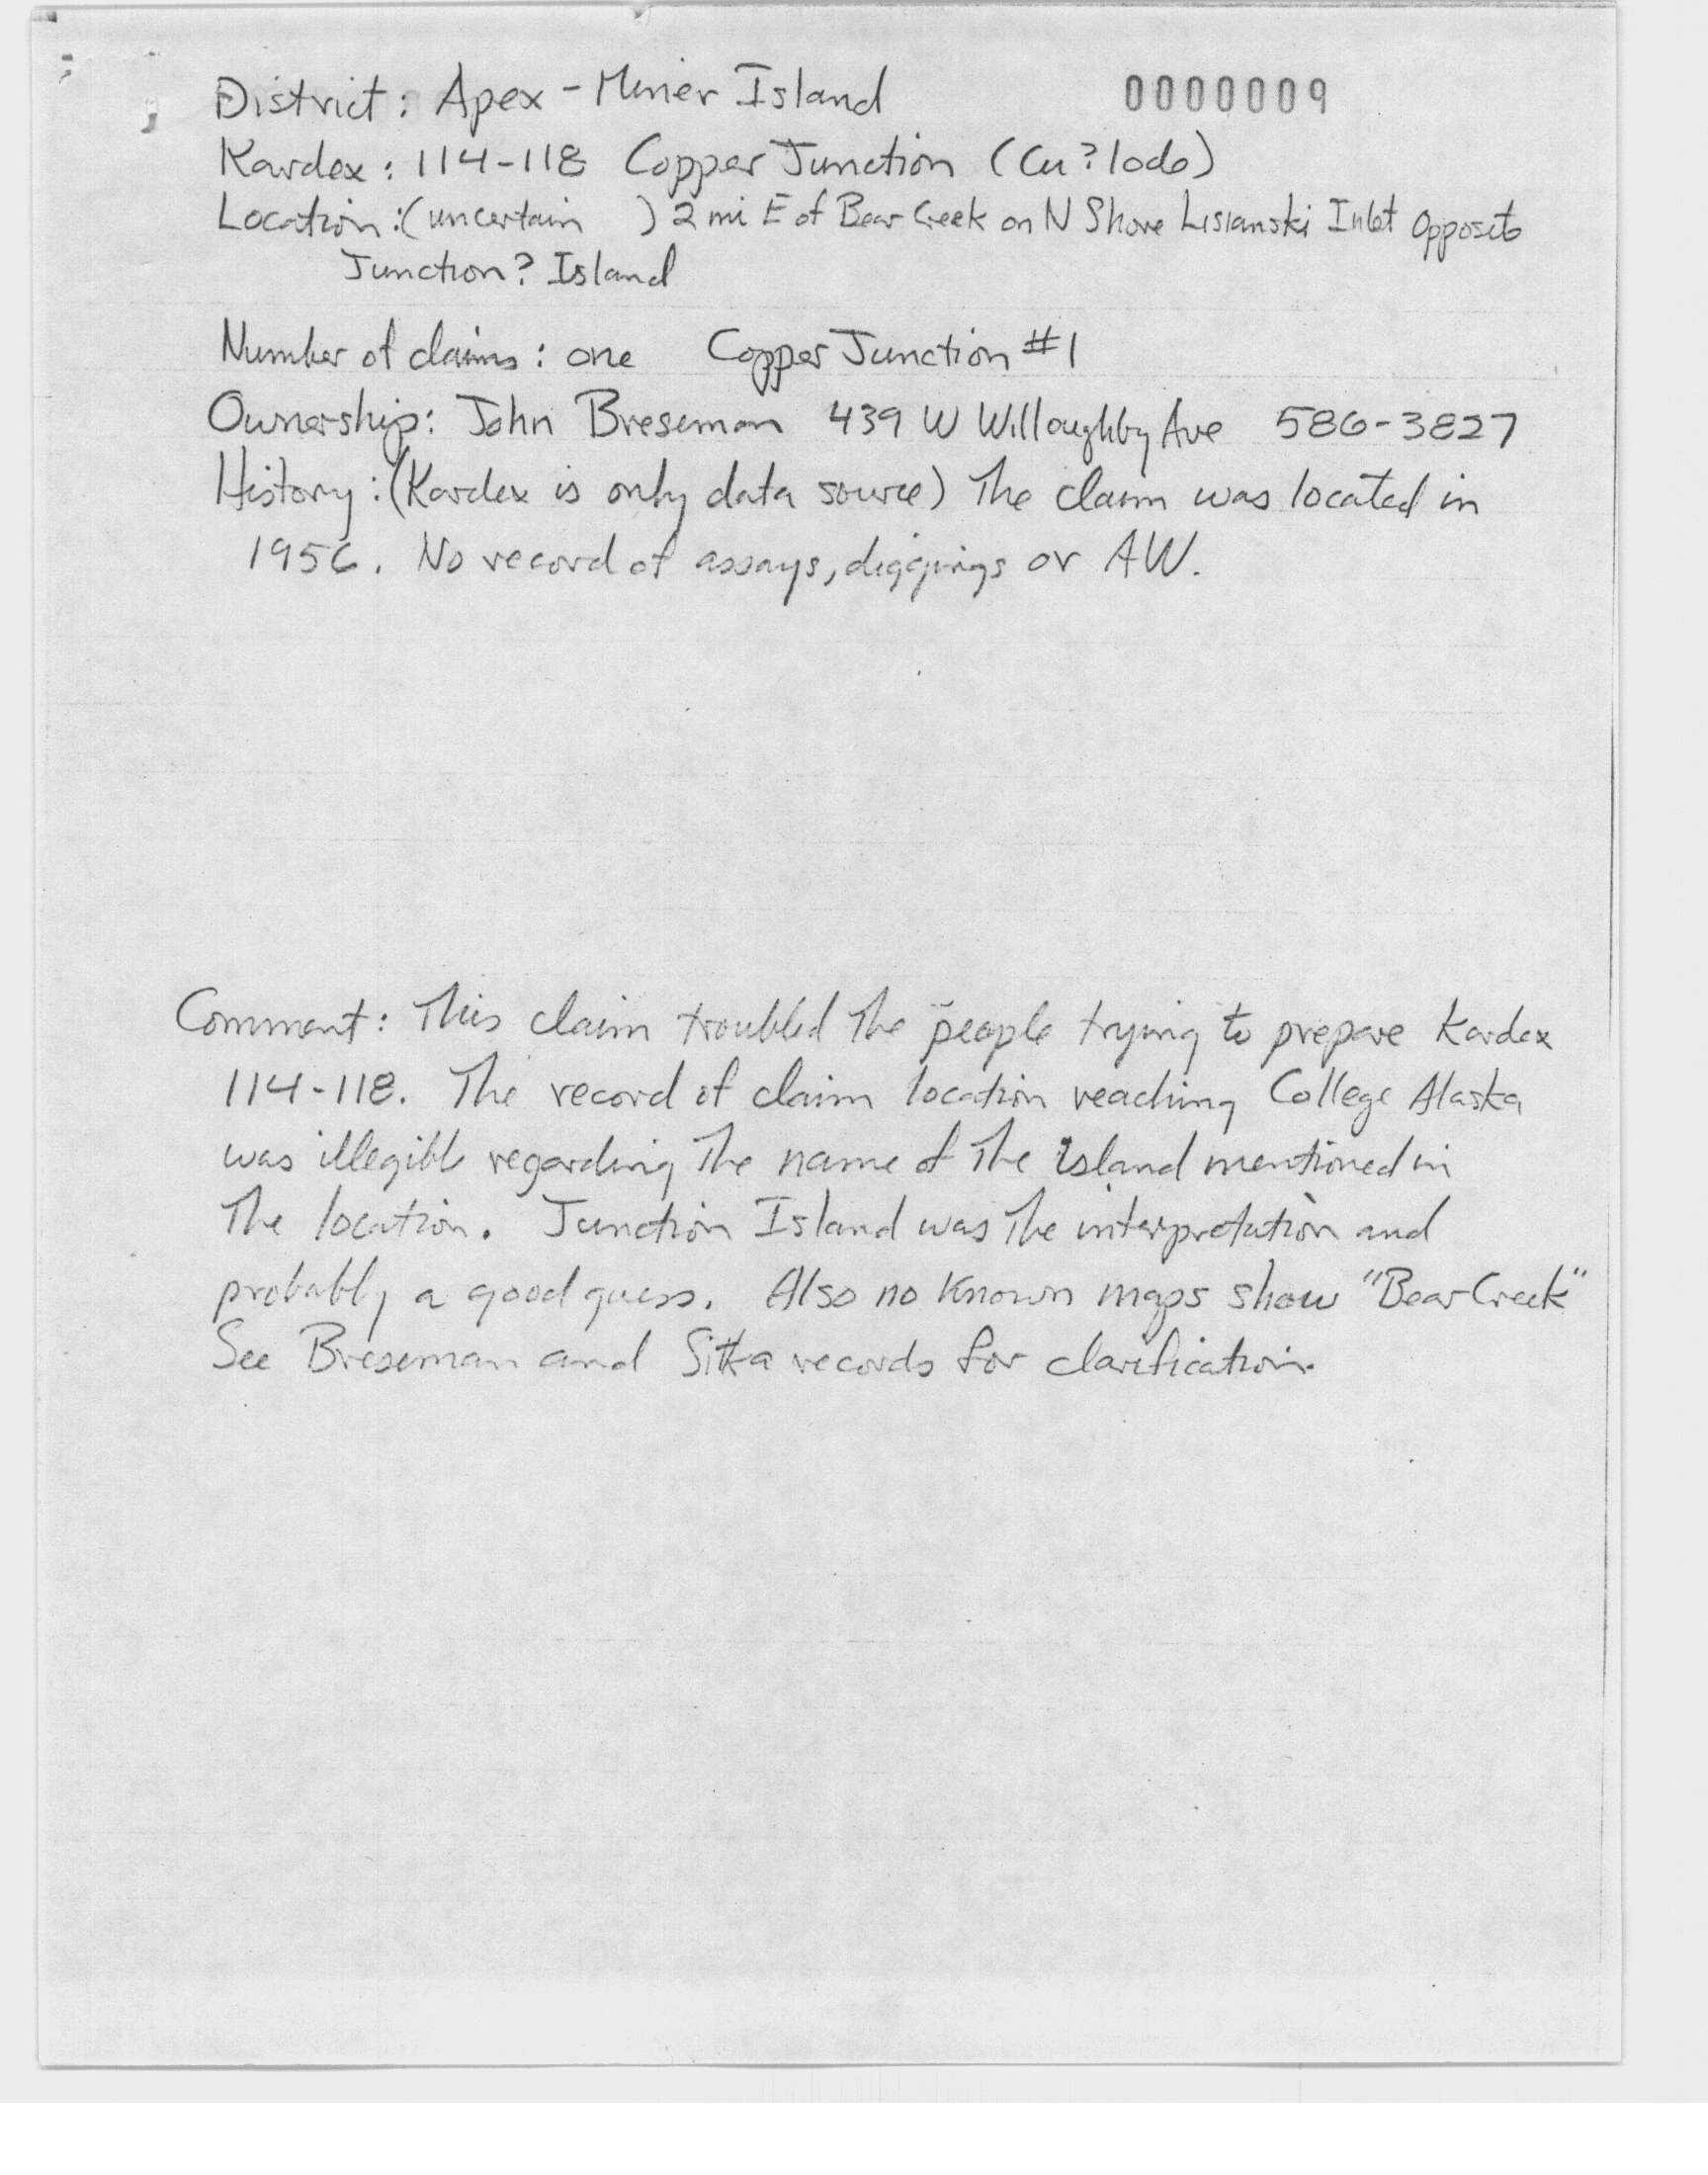 District: Apex - Miner Island 0000009
Kardex: 114-118 Copper Junction (Cu? lode)
Location: (uncertain ) 2 mi E of Bear Creek on N Shore Lisianski Inlet Opposite
Junction? Island
Number of claims: one Copper Junction #1
Ownership: John Breseman 439 W Willoughby Ave 586-3827
History: (Kardex is only data source) The claim was located in
1956. No record of assays, diggings or AW.
Comment: This claim troubled the people trying to prepare Kardex
114-118. The record of claim location reaching College Alaska
was illegible regarding the name of the island mentioned in
the location. Junction Island was the interpretation and
probably a good guess. Also no known maps show "Bear Creek"
See Breseman and Sitka records for clarification.